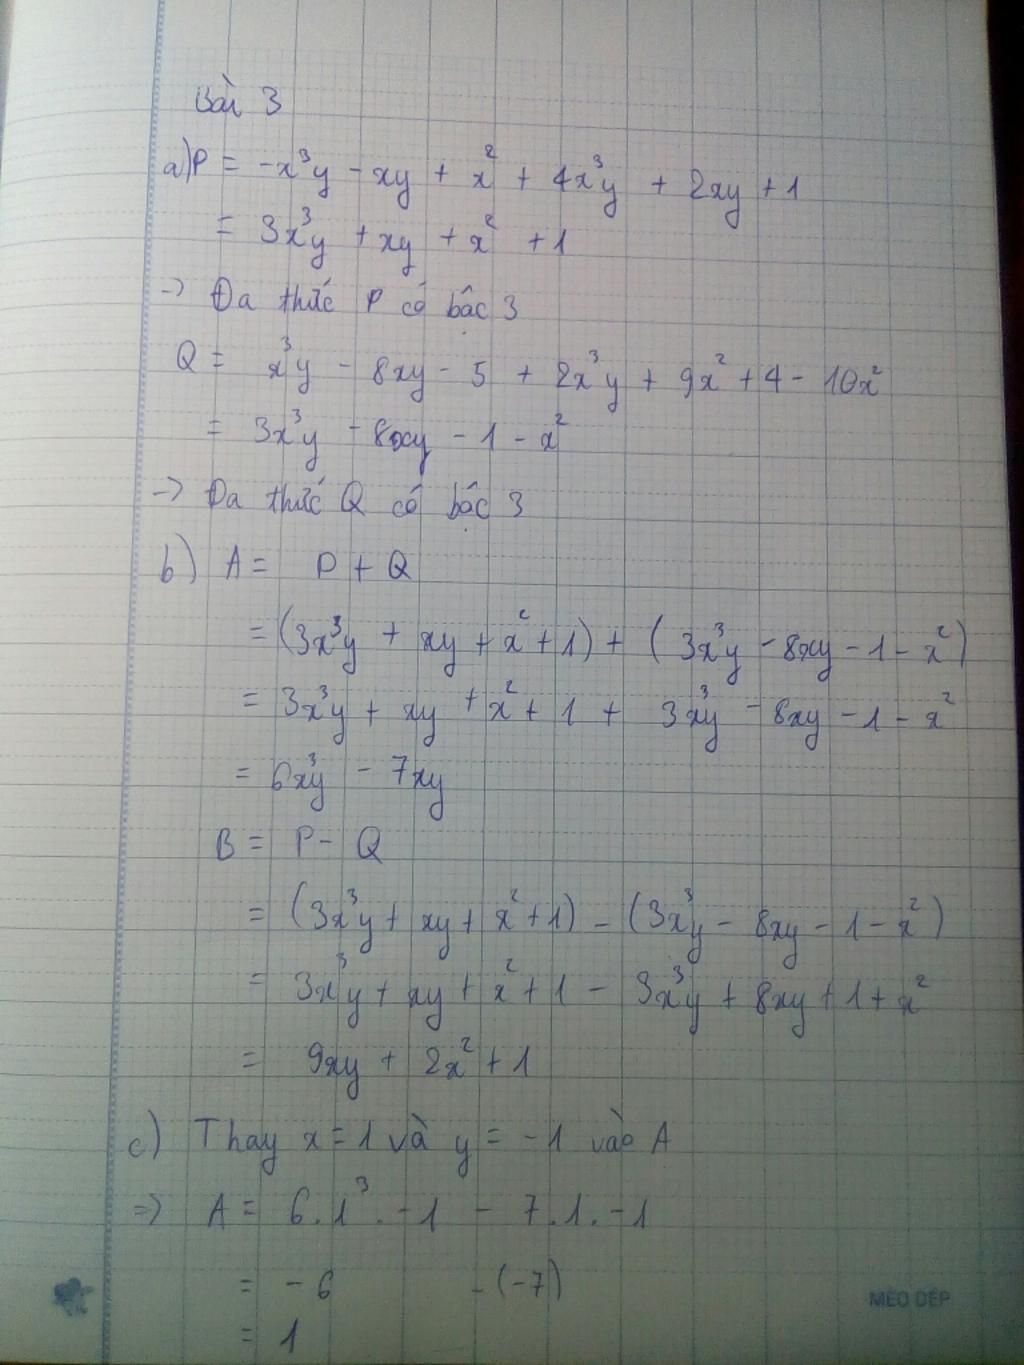 Bài 3
a) P = -x³y - xy + x² + 4x³y + 2xy + 1
= 3x³y + xy + x² + 1
-> Đa thức P có bậc 3
Q = x³y - 8xy - 5 + 2x³y + 9x² + 4 - 10x²
= 3x³y - 8xy - 1 - x²
-> Đa thức Q có bậc 3
b) A = P + Q
= (3x³y + xy + x² + 1) + (3x³y - 8xy - 1 - x²)
= 3x³y + xy + x² + 1 + 3x³y - 8xy - 1 - x²
= 6x³y - 7xy
B = P - Q
= (3x³y + xy + x² + 1) - (3x³y - 8xy - 1 - x²)
= 3x³y + xy + x² + 1 - 3x³y + 8xy + 1 + x²
= 9xy + 2x² + 1
c) Thay x = 1 và y = -1 vào A
=> A = 6.1³.-1 - 7.1.-1
= -6 - (-7)
= 1
MÈO ĐẸP